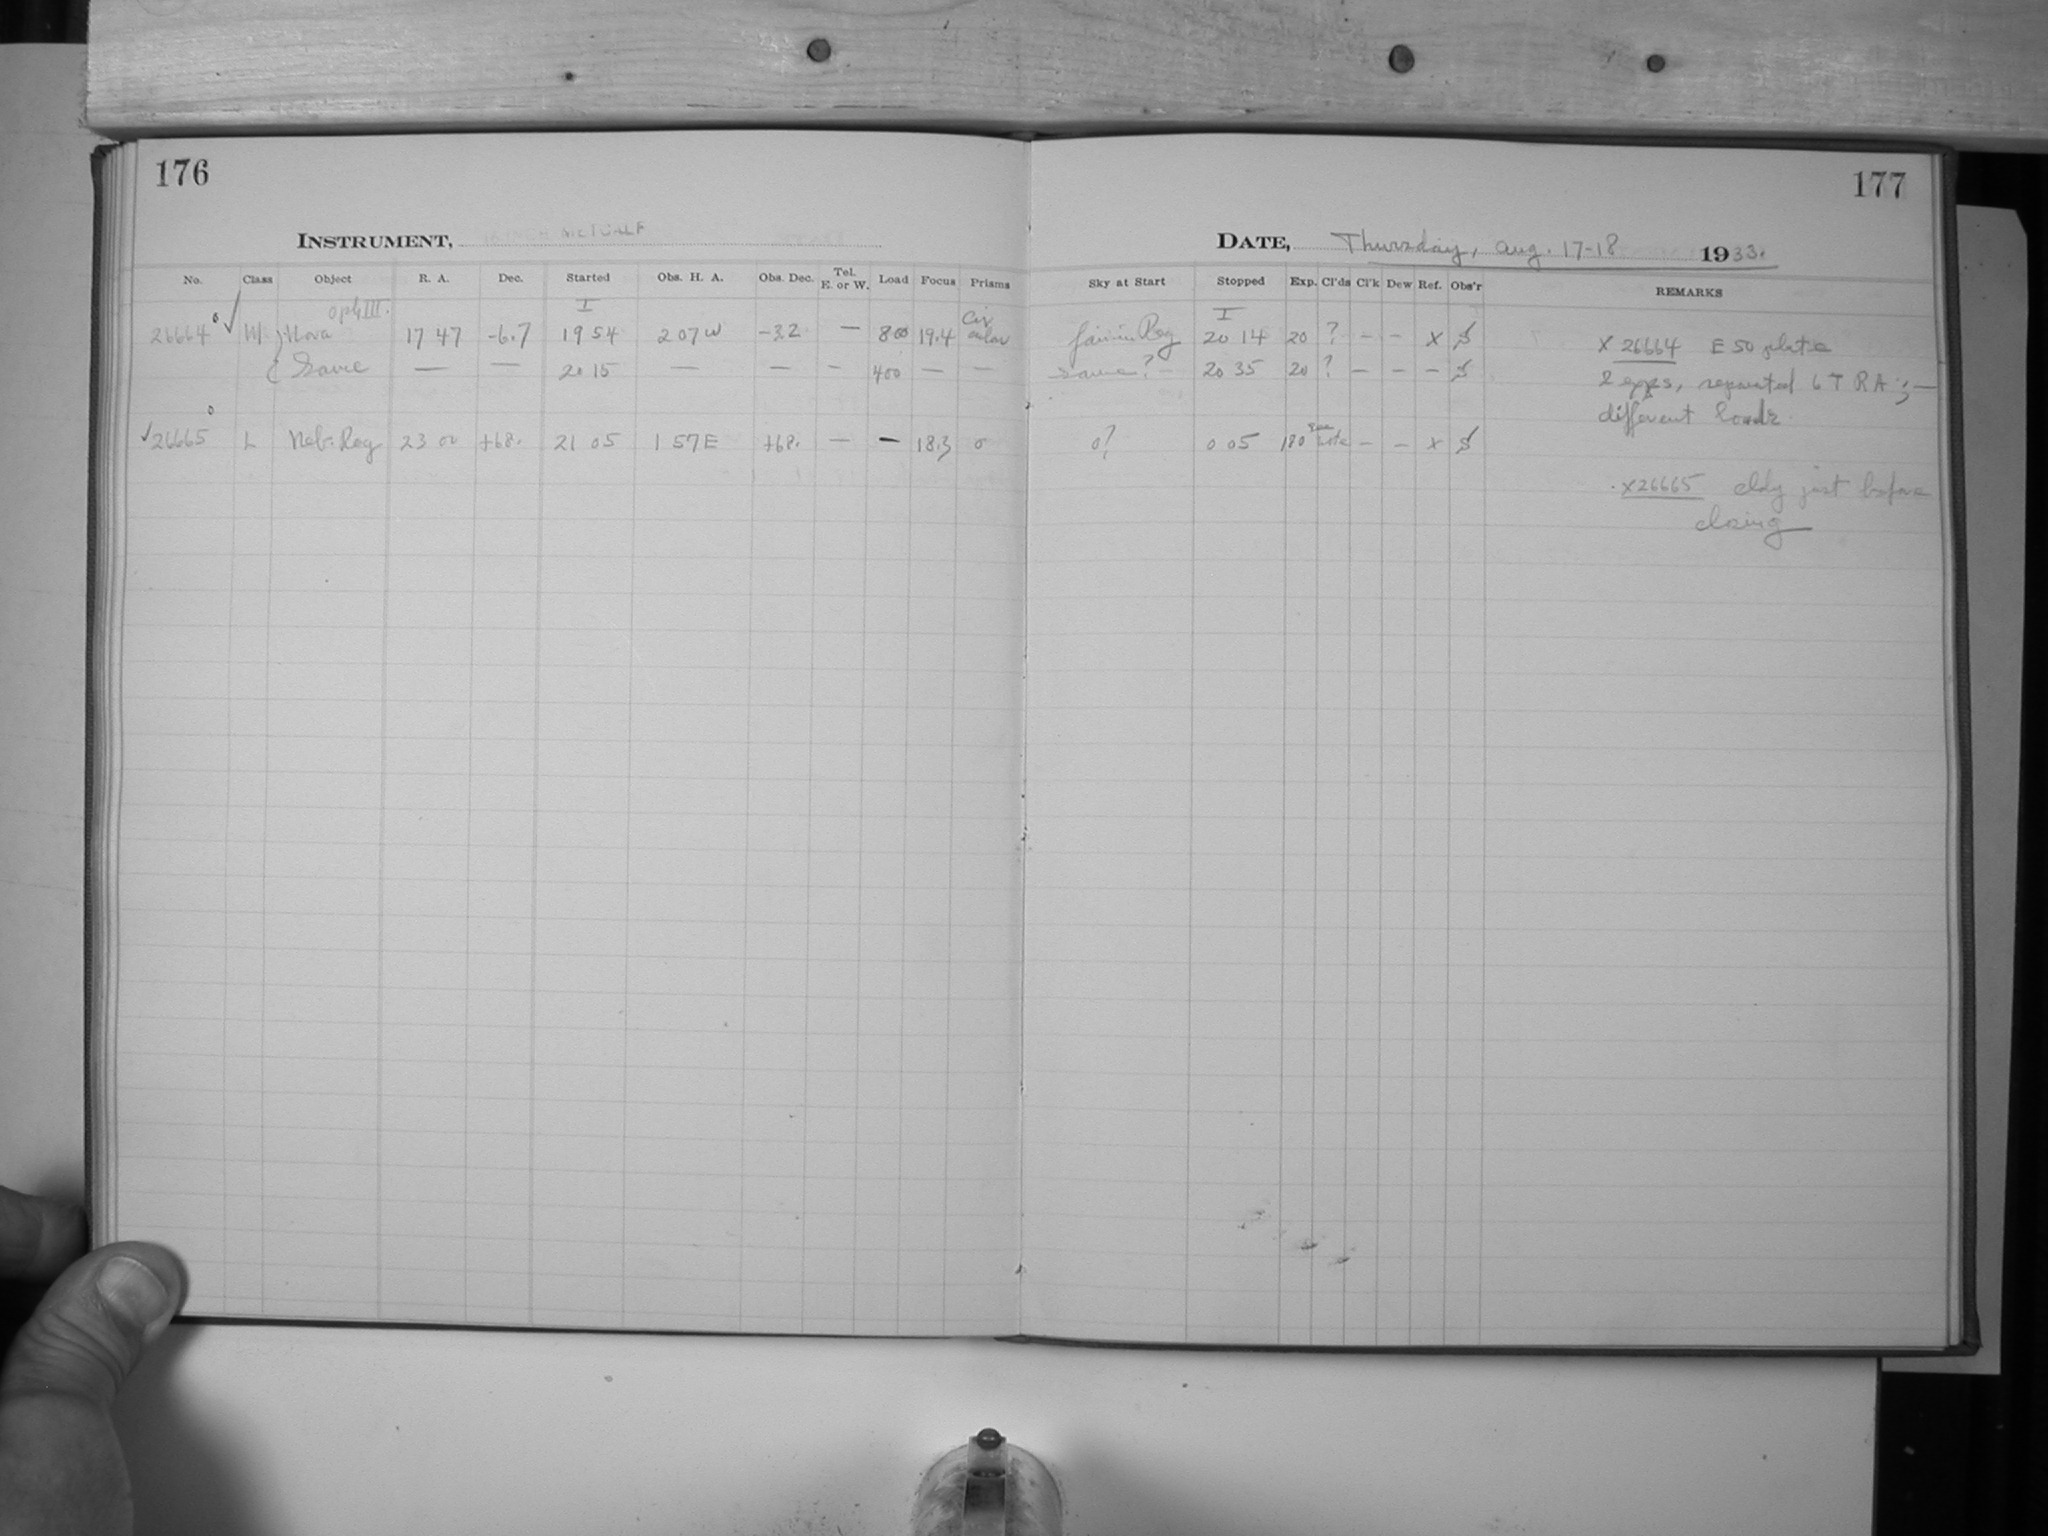 176
INSTRUMENT, METCALF
No. Class Object R. A. Dec. Started Obs. H. A. Obs. Dec. Tel. E. or W. Load Focus Prisms
Oph III. I
26664 ✓ Nova 17 47 -6.7 19 54 2 07 W -32 — 800 19.4
Same — — 20 15 — — — 400 — —
✓ 26665 L Neb. Reg 23 00 +68. 21 05 1 57 E +68. — — 18.3 0
177
DATE, Thursday, Aug. 17-18 1933.
Sky at Start Stopped Exp. Cl'ds Cl'k Dew Ref. Obs'r REMARKS
I
Reg 20 14 20 ? — — X S X 26664 E 50 plate
Same? — 20 35 20 ? — — — S 2 exps, separated 6 T RA; —
different loads.
0? 0 05 180 — — X S
X 26665 cldy just before
closing